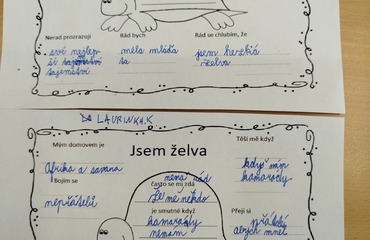 Nerad prozrazuji
Rád bych
Rád se chlubím, že
své nejlep
měla mláďa
jsem hezká
ší tajemství
ta
želva
tajemství
LAURINKA.K
Mým domovem je
Jsem želva
Těší mě když
Afrika a savana
když mám
kamarády
Bojím se
není rád
často se mi zdá
nepřátelů
že mě někdo
je smutné když
Přeji si
kamarády
přátelé
nemám
abych měl